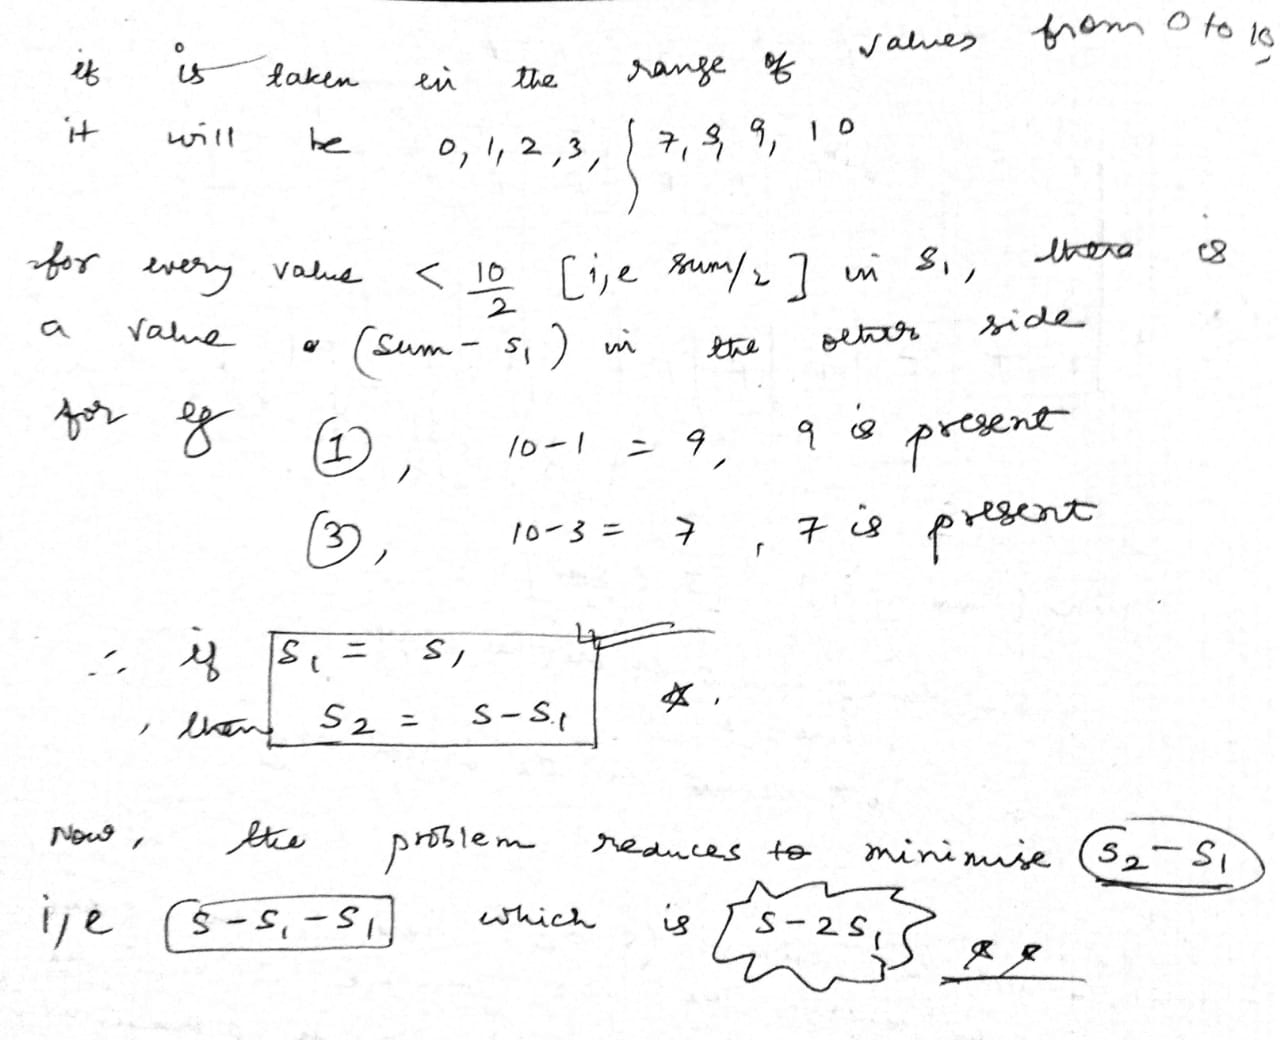 if is taken in the range of values from 0 to 10,
it will be 0, 1, 2, 3, 7, 8, 9, 10
for every value < 10/2 [i,e sum/2] in S1, there is
a value (sum - S1) in the other side
for eg ①, 10-1 = 9, 9 is present
③, 10-3 = 7, 7 is present
∴ if S1 = S1
, then S2 = S-S1 *.
Now, the problem reduces to minimise S2-S1
i,e S-S1-S1 which is S-2S1 **